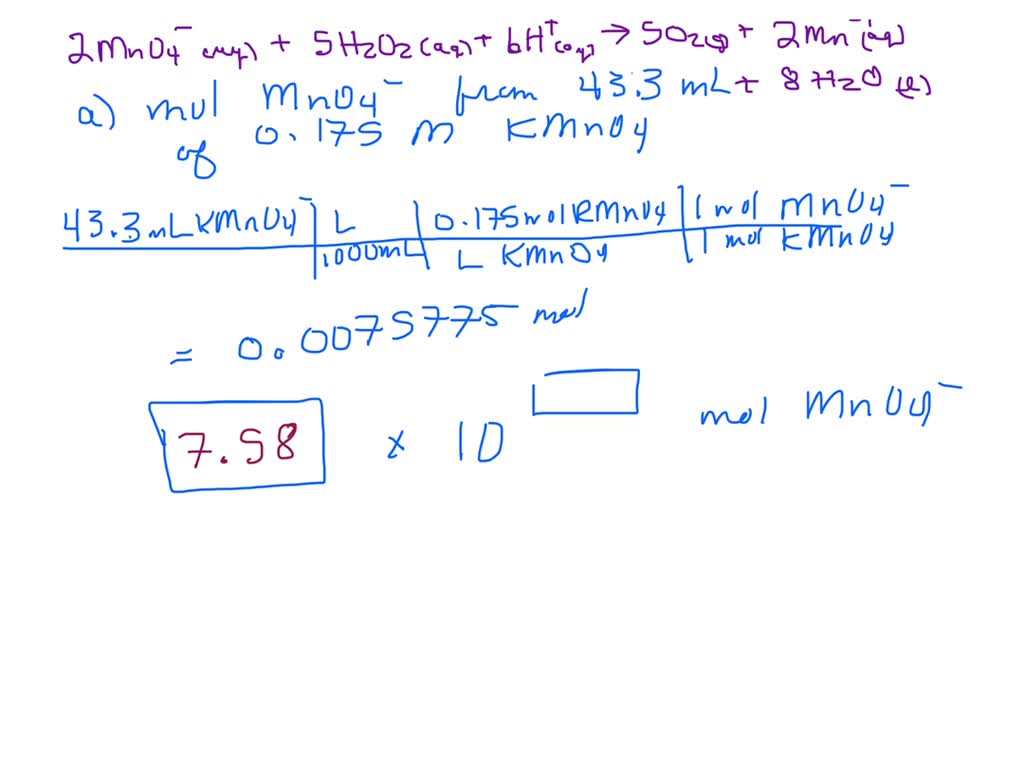 2MnO4⁻ (aq) + 5H2O2 (aq) + 6H⁺ (aq) → 5O2 (g) + 2Mn⁻ (aq)
+ 8 H2O (l)
a) mol MnO4⁻ from 43.3 mL
of 0.175 M KMnO4
43.3 mL KMnO4⁻ | L | 0.175 mol KMnO4 | 1 mol MnO4⁻
| 1000mL | L KMnO4 | 1 mol KMnO4
= 0.0075775 mol
7.58 x 10 mol MnO4⁻